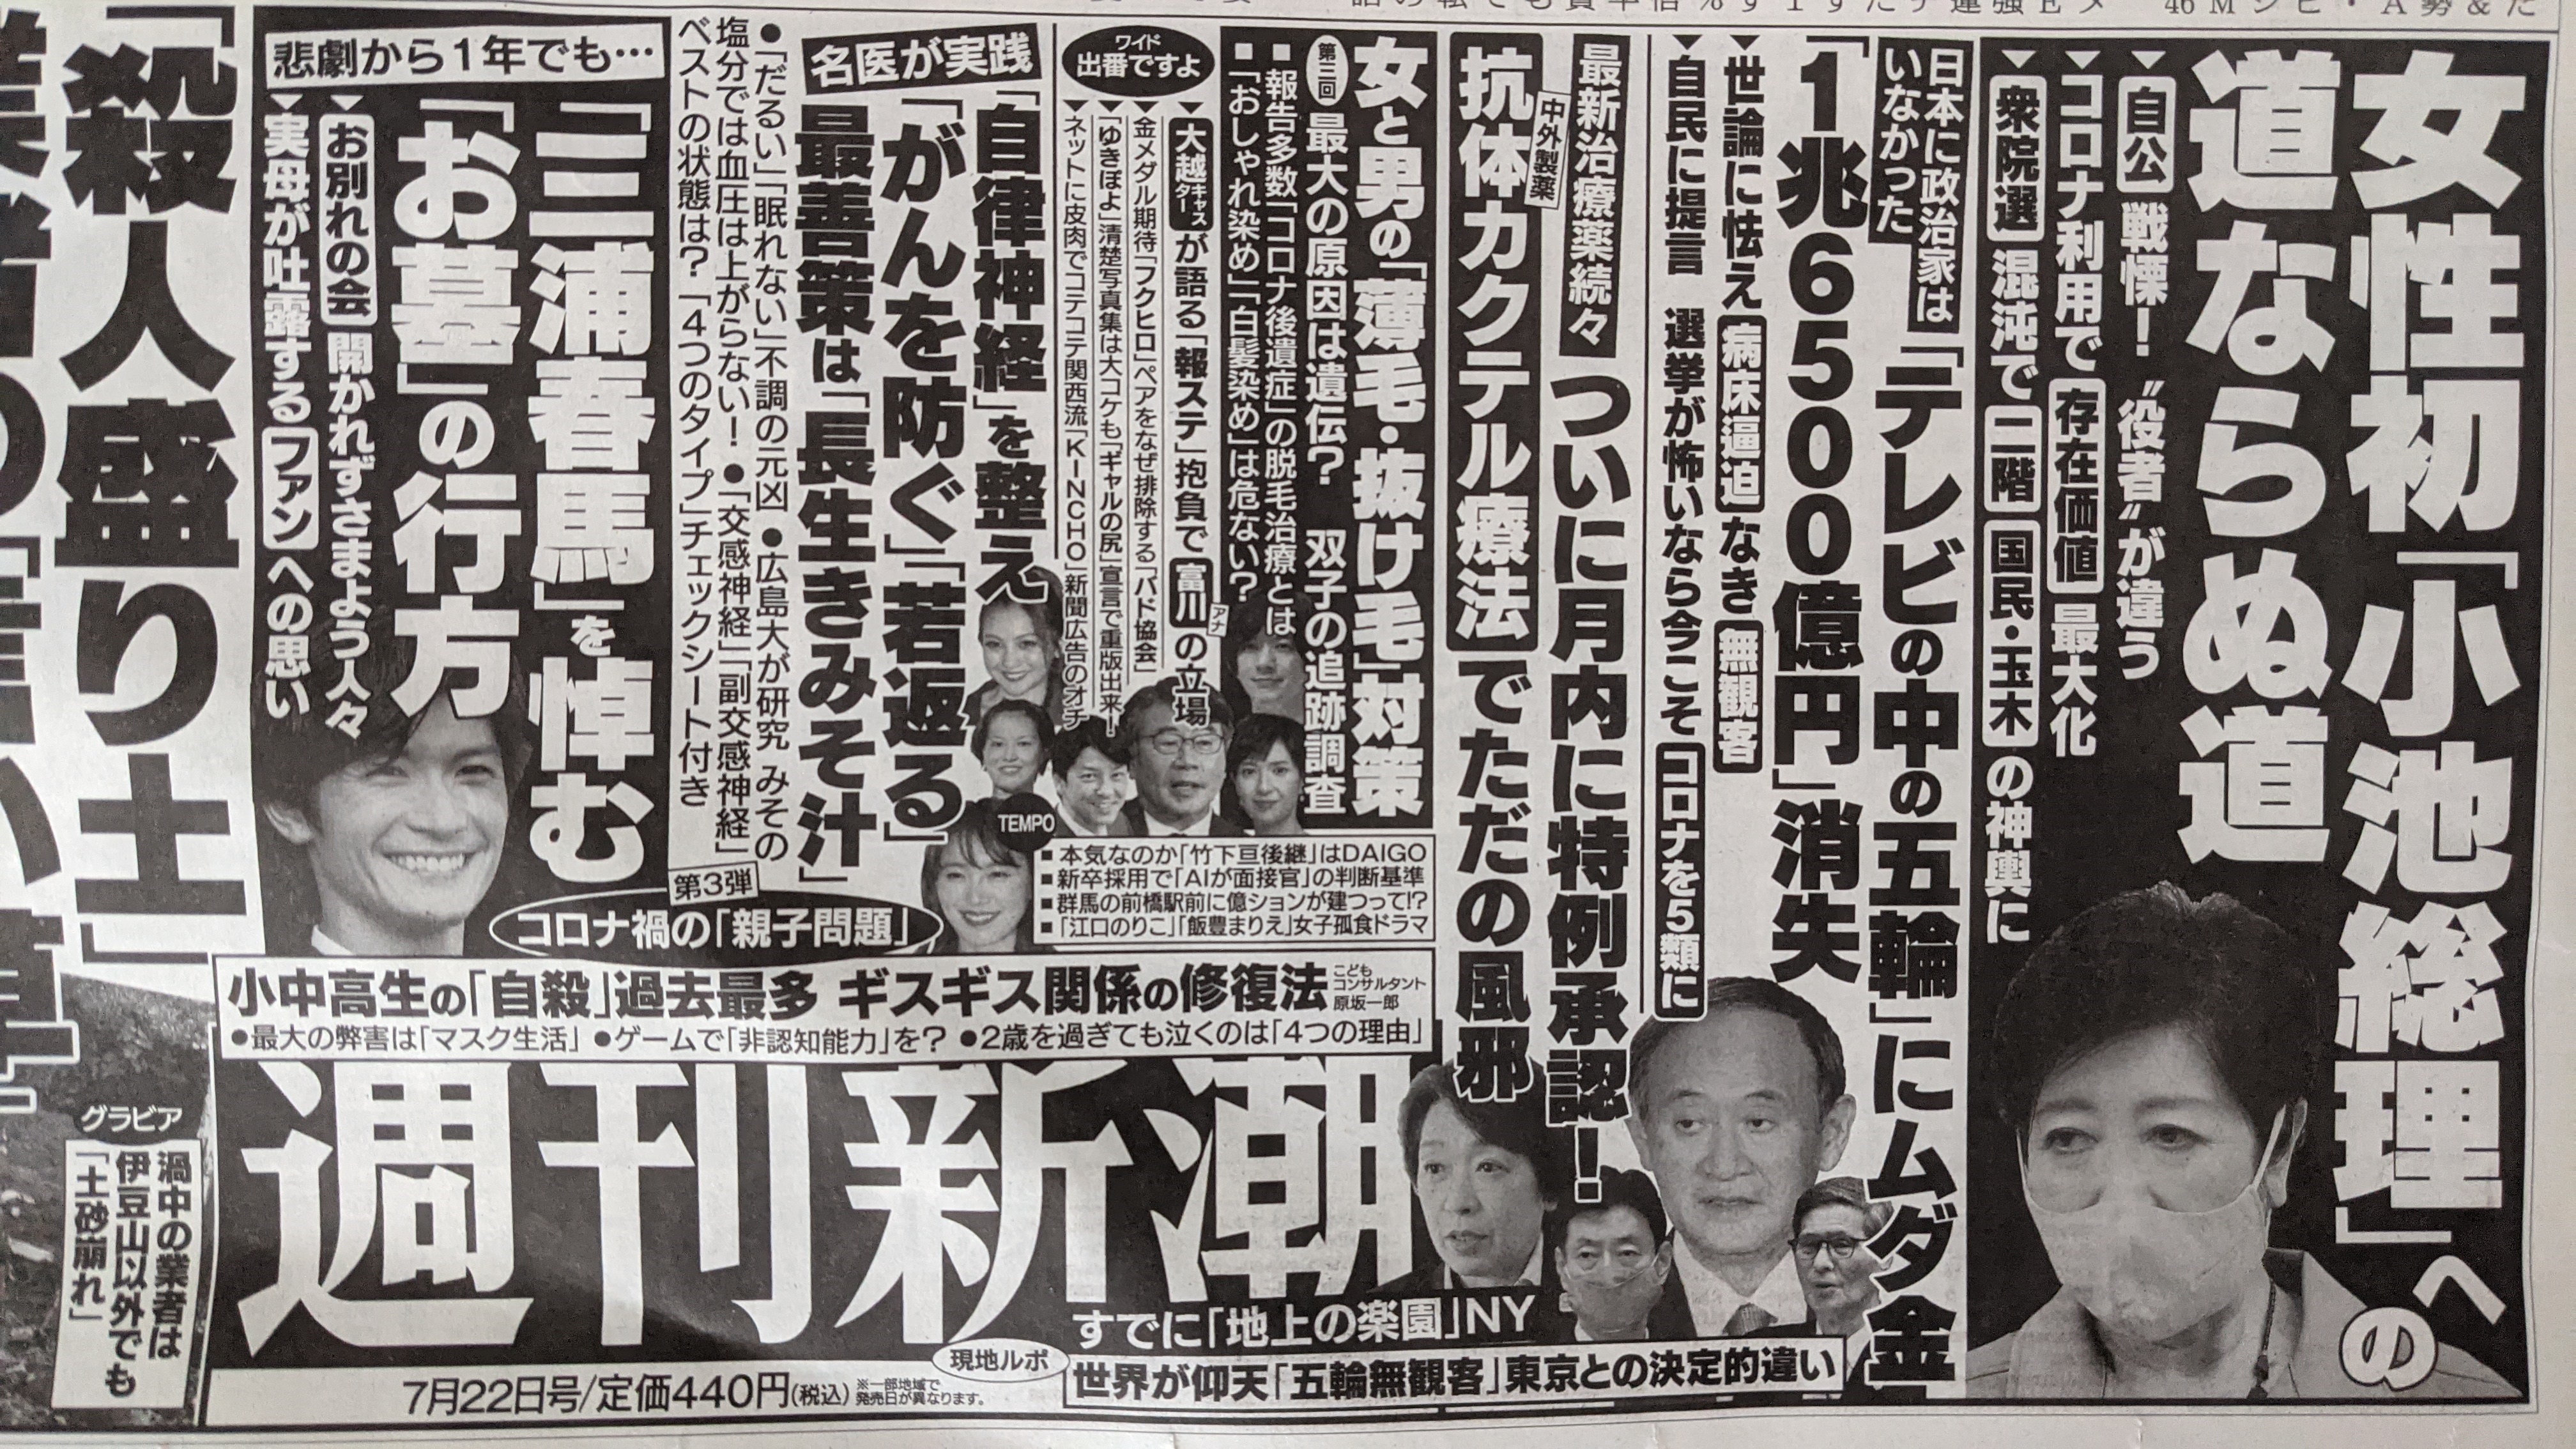 女性初「小池総理」への
道ならぬ道
▼自公戦慄!〝役者〟が違う
▼コロナ利用で存在価値最大化
▼衆院選混沌で二階 国民・玉木の神輿に
日本に政治家は
いなかった
「テレビの中の五輪」にムダ金
「1兆6500億円」消失
▼世論に怯え病床逼迫なき無観客
▼自民に提言 選挙が怖いなら今こそコロナを5類に
最新治療薬続々
ついに月内に特例承認!
中外製薬
抗体カクテル療法でただの風邪
女と男の「薄毛・抜け毛」対策
第三回
最大の原因は遺伝? 双子の追跡調査
■報告多数「コロナ後遺症」の脱毛治療とは
■「おしゃれ染め」「白髪染め」は危ない?
ワイド
出番ですよ
▼大越キャスターが語る「報ステ」抱負で富川アナの立場
▼金メダル期待「フクヒロ」ペアをなぜ排除する「バド協会」
▼「ゆきぽよ」清楚写真集は大コケも「ギャルの尻」宣言で重版出来!
▼ネットに皮肉でコテコテ関西流「KINCHO」新聞広告のオチ
名医が実践
「自律神経」を整え
「がんを防ぐ」「若返る」
最善策は「長生きみそ汁」
●「だるい」「眠れない」不調の元凶 ●広島大が研究 みその
塩分では血圧は上がらない! ●「交感神経」「副交感神経」
ベストの状態は?「4つのタイプ」チェックシート付き
悲劇から1年でも…
「三浦春馬」を悼む
「お墓」の行方
▼お別れの会開かれずさまよう人々
▼実母が吐露するファンへの思い
TEMPO
■本気なのか「竹下亘後継」はDAIGO
■新卒採用で「AIが面接官」の判断基準
■群馬の前橋駅前に億ションが建つって!?
■「江口のりこ」「飯豊まりえ」女子孤食ドラマ
第3弾
コロナ禍の「親子問題」
小中高生の「自殺」過去最多 ギスギス関係の修復法
こども
コンサルタント
原坂一郎
●最大の弊害は「マスク生活」 ●ゲームで「非認知能力」を? ●2歳を過ぎても泣くのは「4つの理由」
週刊新潮
すでに「地上の楽園」NY
現地ルポ
世界が仰天「五輪無観客」東京との決定的違い
7月22日号/定価440円(税込)
※一部地域で
発売日が異なります。
「殺人盛り土」
グラビア
渦中の業者は
伊豆山以外でも
「土砂崩れ」